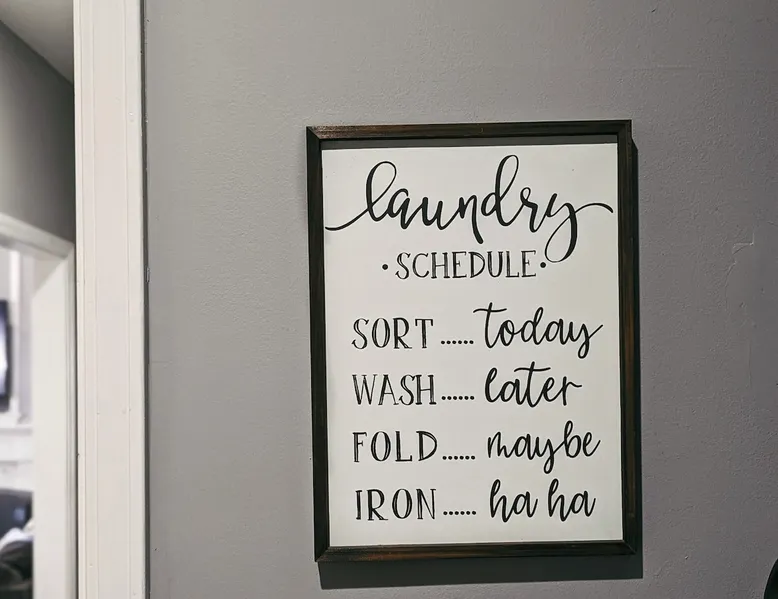 laundry
·SCHEDULE·
SORT ...... today
WASH ...... later
FOLD ...... maybe
IRON ...... ha ha